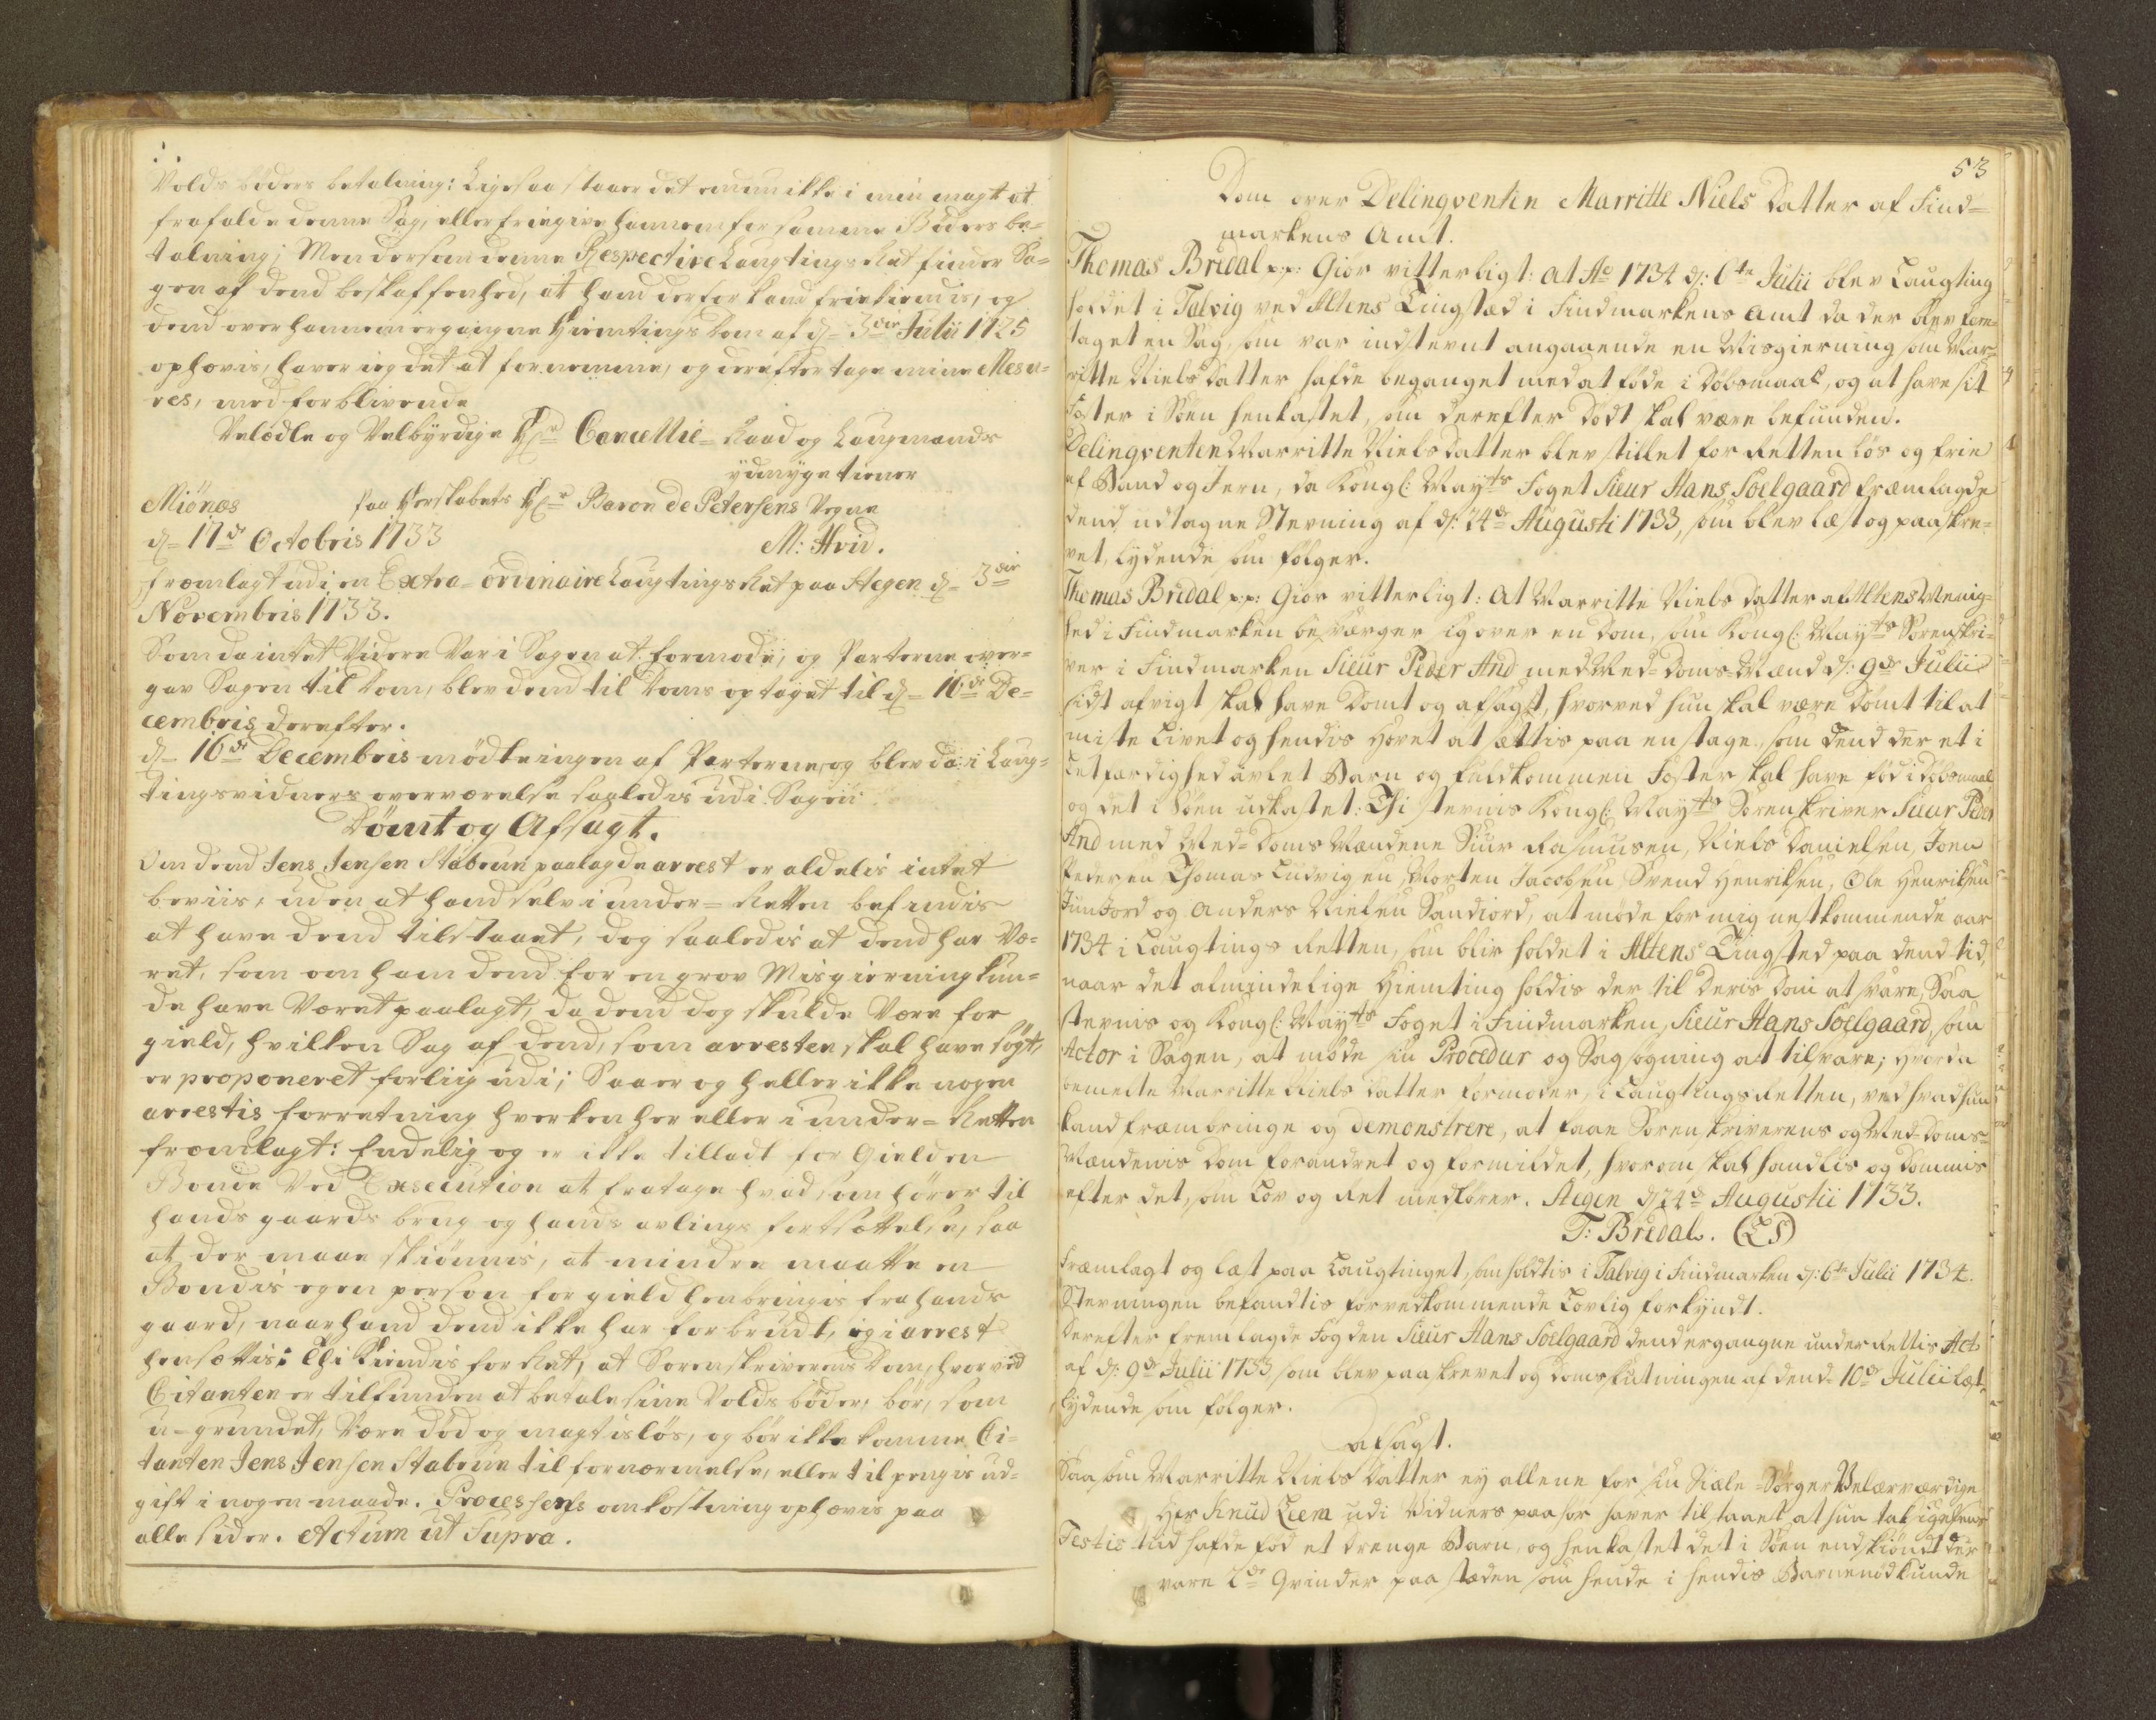 Volds böders betalning: Ligesaa staaer det endnu ikke i min magt at
frafalde denne Sag, eller frigive hannem for samme Böders be-
talning; Men dersom denne Respective Laugtings Ret finder Sa-
gen af dend beskaffenhed, at hand derfor kand frikiendis, og
dend over hannem ergangne Hiemtings Dom af d. 3die Julii 1725
ophævis, haver ieg det at fornemme, og derefter tage mine Mesu-
res, med forblivende
Velædle og Velbyrdige Hr Cancellie-Raad og Laugmands
ydmyge tiener
Miönes paa Herskabets Hr Baron de Petersens Vegne
d. 17de Octobris 1733 M: Hvid.
fremlagt udi en Extra-ordinaire Laugtings Ret paa Stegen d. 3die
Novembris 1733.
Som da intet Videre Var i Sagen at formode, og Parterne over-
gav Sagen til Dom, blev dend til Doms optaget til d. 16de De-
cembris derefter.
d. 16de Decembris mödte ingen af Parterne, og blev da i Laug-
tingsvidners overværelse saaledis udi Sagen
Dömt og Afsagt.
Om dend Jens Jensen Stabrun paalagde arrest er aldelis intet
beviis, uden at hand selv i under-Retten befindis
at have dend tilstaaet, dog saaledis at dend har Væ-
ret, som om ham dend for en grov Misgierning kun-
de have Været paalagt, da dend dog skulde Være for
gield, hvilken Sag af dend, som arresten skal have sögt,
er proponeret forliig udi; Saa er og heller ikke nogen
arrestis forretning hverken her eller i under-Retten
fremlagt: Endelig og er ikke tilladt for Gield en
Bonde Ved Execution at fratage hvad som hörer til
hands gaards brug og hands avlings fortsettelse, saa
at der maae skiönnis, at mindre maatte en
Bondis egen person for gield henbringis fra hands
gaard, naar hand dend ikke har forbrudt, og i arrest
hensættis: Thi Kiendis for Ret, at Sorenskriverens Dom, hvorved
Citanten er tilfunden at betale sine Volds böder, bör, som
u-grundet, Være död og magtislös, og bör ikke komme Ci-
tanten Jens Jensen Stabrun til fornærmelse, eller til pengis ud-
gift i nogen maade. Processens omkostning ophævis paa
alle sider. Actum ut Supra.
53
Dom over Delinqventin Marritte Niels Datter af Find-
markens Amt.
Thomas Bredal p.p: Giör vitterligt: at Ao 1734 d: 6te Julii blev Laugting
holdet i Talvig ved Altens Tingsted i Findmarkens Amt da der blev fore-
taget en Sag, som var indstevnt angaaende en Misgierning som Mar-
ritte Niels Datter hafde beganget med at föde i Dölsmaal, og at have sit
Foster i Söen henkastet, som derefter Dödt skal være befunden.
Delinqventen Marritte Nielsdatter blev stillet for Retten lös og frie
af Baand og Jern, da Kongl: Mayts Foget Sieur Hans Soelgaard fremlagde
dend udtagne Stevning af d: 24de Augusti 1733, som blev læst og paaskre-
vet, lydende som fölger.
Thomas Bredal p.p: Giör vitterligt: At Marritte Niels datter af Altens Menig-
hed i Findmarken besværger sig over en Dom, som Kongl: Mayts Sorenskri-
ver i Findmarken Sieur Peder And med Med-Doms-Mænd d: 9de Julii
sidst afvigt skal have Dömt og afsagt, hvorved hun skal være Dömt til at
miste Livet og hendis Hovet at sættis paa en stage, som dend der et i
Letfærdighed avlet Barn og fuldkommen Foster skal have föd i Dölsmaal
og det i Söen udkastet: Thi stevnis Kongl: Mayts Sorenskriver Sieur Peder
And med Med-Doms Mændene Siur Rasmusen, Niels Danielsen, Joen
Pedersen Thomas Ludvigsen, Morten Jacobsen, Svend Henriksen, Ole Henriksen
og Anders Nielsen Sandiord, at möde for mig nestkommende aar
1734 i Laugtings Retten, som blir holdet i Altens Tingsted paa dend tid,
naar det almindelige Hiemting holdis der til Deris Dom at svare, Saa
stevnis og Kongl: Mayts Foget i Findmarken, Sieur Hans Soelgaard, som
Actor i Sagen, at möde sin Procedur og Sagsögning at tilsvare; Hvorda
bemelte Marritte Niels datter formoder, i Laugtings Retten, ved hvad hun
kand frembringe og demonstrere, at faae Sorenskriverens og Med-Doms-
Mændenis Dom forandret og formildet, hvorom skal handlis og Dömmis
efter det, som Lov og Ret medförer. Stegen d: 24de Augustii 1733.
T: Bredal. (LS)
Fremlagt og læst paa Laugtinget, som holdtis i Talvig i Findmarken d: 6te Julii 1734.
Stevningen befandtis for vedkommende Lovlig forkyndt.
Derefter fremlagde Fogden Sieur Hans Soelgaard dend ergangne under Rettis Act
af d: 9de Julii 1733, som blev paaskrevet og Domsslutningen af dend 10de Julii læst,
lydende som fölger.
Afsagt.
Saasom Marritte Niels Datter ey allene for sin Siæle-Sörger Velærværdige
Her Knud Leem udi Vidners paahör haver tilstaaet, at hun sal.
Festis tid hafde föd et drenge Barn, og henkastet det i Söen endskiönt der
vare 2de Qvinder paa stæden som hende i hendis Barnenöd kunde